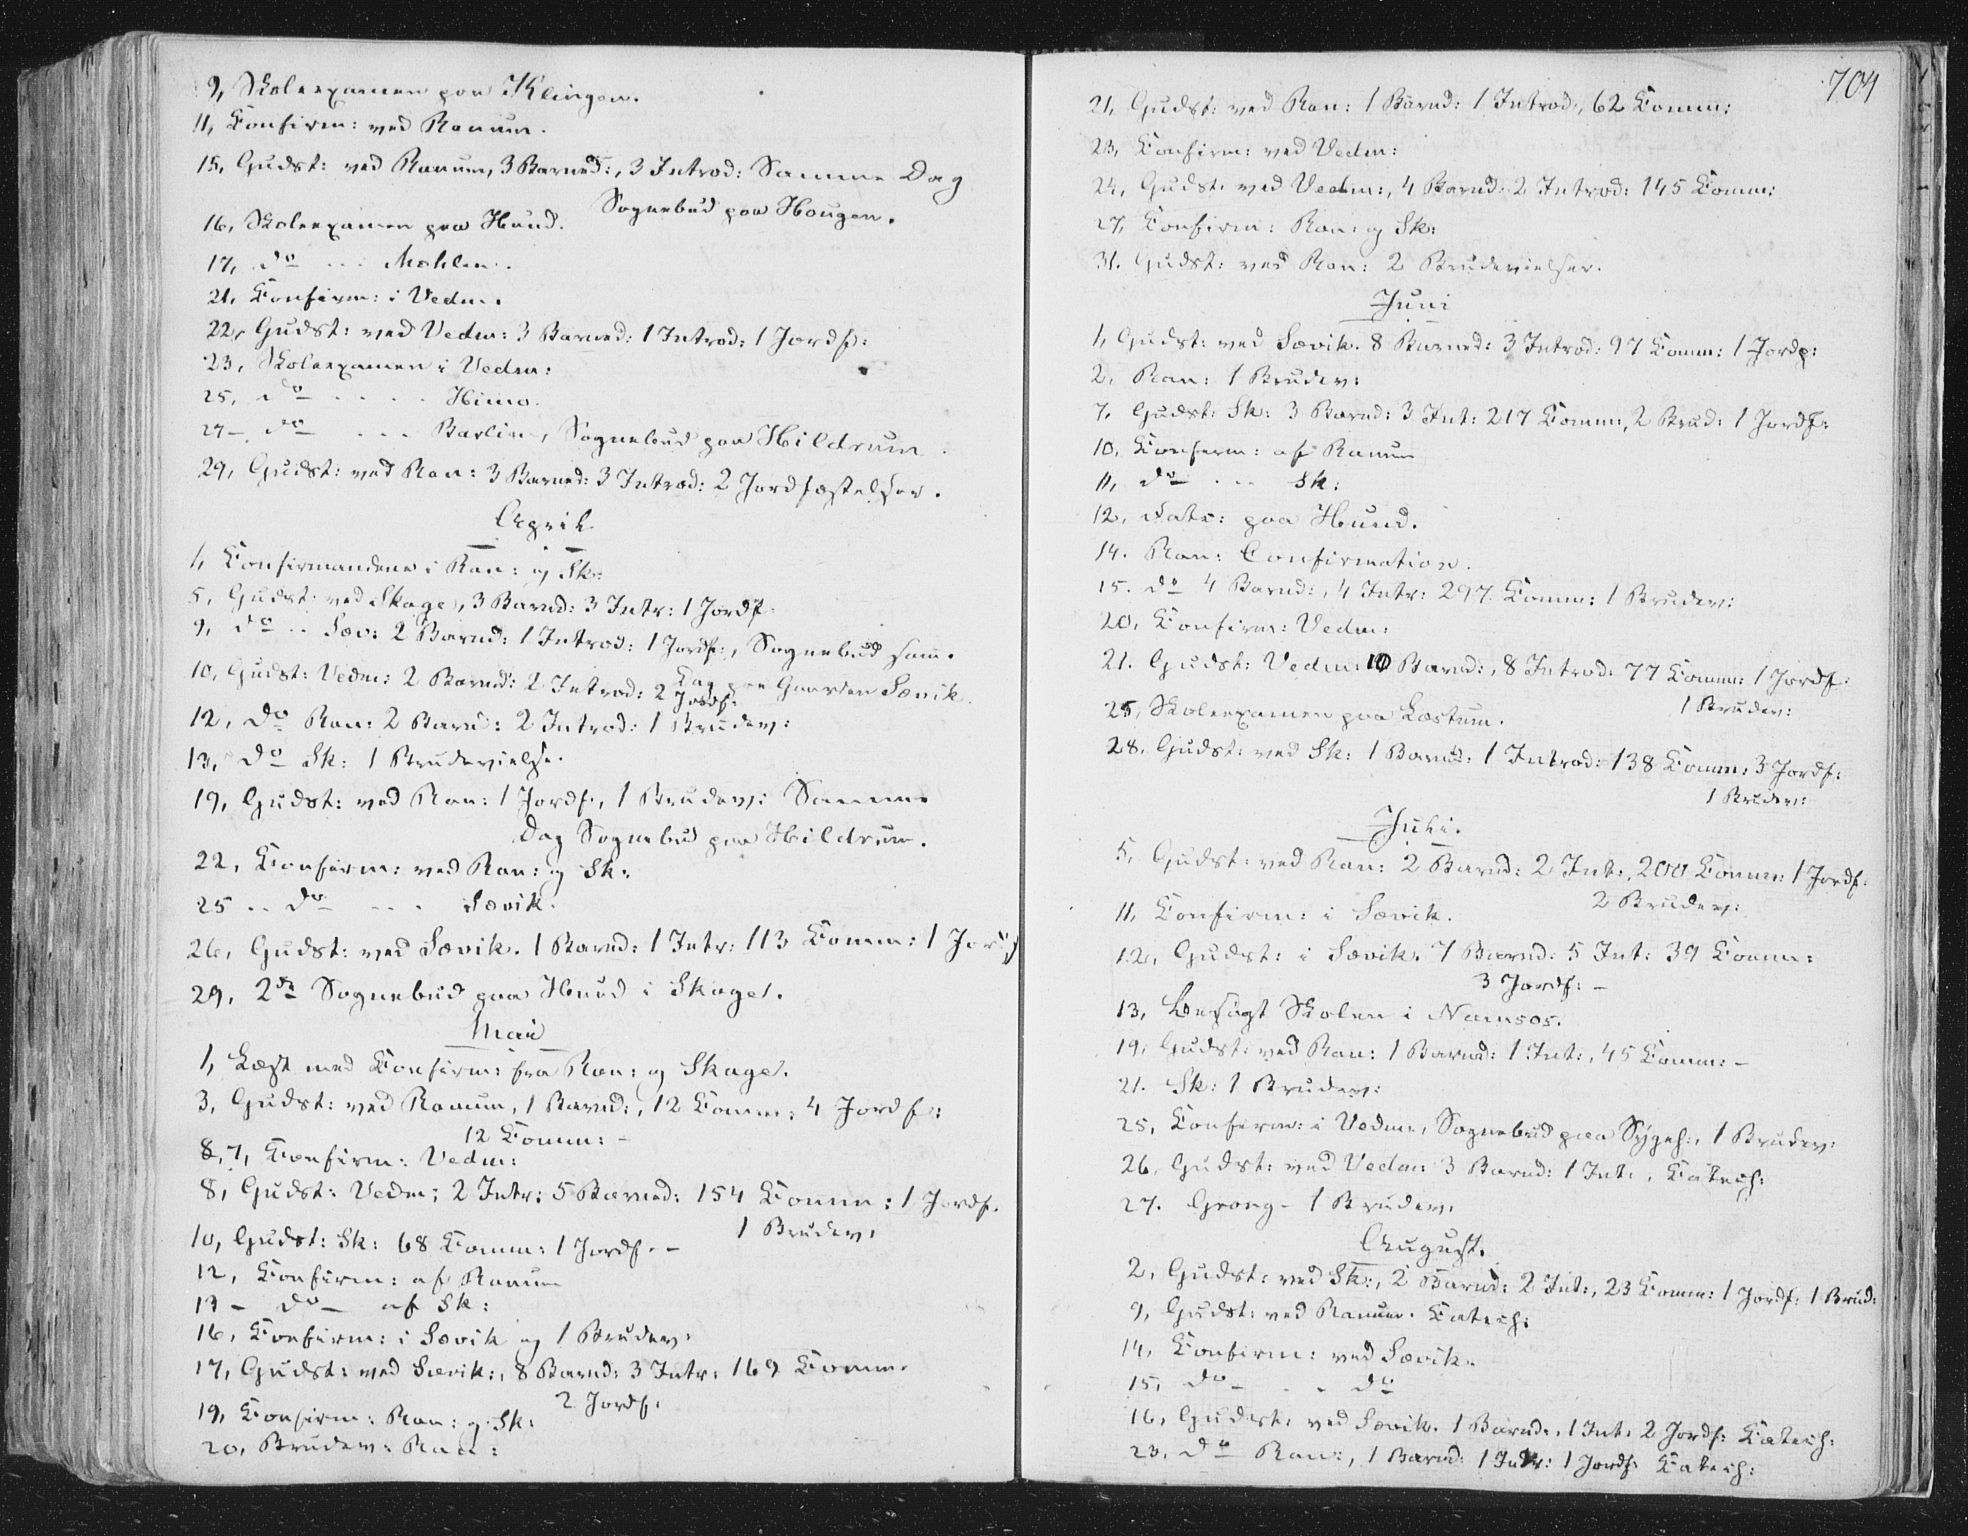 9, Skoleexamen paa Klingen.
11, Confirm: ved Ranum.
15, Gudst: ved Ranum, 3 Barned:, 3 Introd: Samme Dag
Sognebud paa Hougen.
16, Skoleexamen paa Hund.
17, do ... Mæhlen.
21, Confirm: i Vedm.
22, Gudst: ved Vedm: 3 Barned: 1 Introd: 1 Jordf:
23, Skoleexamen i Vedm:
25, do .... Himo.
27 – do ... Barlin, Sognebud paa Hildrum.
29, Gudst: ved Ran: 3 Barned: 3 Introd: 2 Jordfæstelser.
April
1, Confirmandene i Ran: og Sk:
5, Gudst: ved Skage, 3 Barnd: 3 Intr: 1 Jordf:
9, do .. Sæv: 2 Barnd: 1 Introd: 1 Jordf:, Sognebud sam.
Dag paa Gaarden Sævik.
10, Gudst: Vedm: 2 Barnd: 2 Introd: 2 Jordf:
12, do Ran: 2 Barnd: 2 Introd: 1 Brudev:
13, do Sk: 1 Brudevielse.
19, Gudst: ved Ran: 1 Jordf:, 1 Brudev: Samme
Dag Sognebud paa Hildrum.
22, Confirm: ved Ran: og Sk:
25 .. do ... Sævik.
26, Gudst: ved Sævik. 1 Barnd: 1 Intr: 113 Comm: 1 Jordf
29, 2de Sognebud paa Hund i Skage.
Mai
1, Læst med Confirm: fra Ran: og Skage.
3, Gudst: ved Ranum, 1 Barnd:, 12 Comm: 4 Jordf:
12 Comm: –
8,7, Confirm: Vedm:
8, Gudst: Vedm; 2 Intr: 5 Barned: 154 Comm: 1 Jordf.
1 Brudev:
10, Gudst: Sk: 68 Comm: 1 Jordf. –
12, Confirm: af Ranum
13 – do – af Sk:
16, Confirm: i Sævik og 1 Brudev:
17, Gudst: ved Sævik:, 8 Barnd: 3 Intr: 169 Comm.
2 Jordf:
19, Confirm: Ran: og Sk:
20, Brudev: Ran:
704
21, Gudst: ved Ran: 1 Barnd: 1 Introd:, 62 Comm:
23, Confirm: ved Vedm:
24, Gudst: ved Vedm:, 4 Barnd: 2 Introd: 145 Comm:
27, Confirm: Ran: og Sk:
31. Gudst: ved Ran: 2 Brudevielser.
Juni
1, Gudst: ved Sævik. 8 Barned: 3 Introd: 97 Comm: 1 Jordf:
2, Ran: 1 Brudev:
7, Gudst: Sk: 3 Barnd: 3 Int: 217 Comm:, 2 Brud: 1 Jordf:
10, Confirm: af Ranum
11, do ... Sk:
12, Cate: paa Hund.
14. Ran: Confirmation.
15. do 4 Barnd:, 4 Intr: 297 Comm: 1 Brudev:
20, Confirm: Vedm:
21. Gudst: Vedm: 10 Barnd:, 8 Introd: 77 Comm: 1 Jordf:
1 Brudev:
25, Skoleexamen paa Læstum.
28. Gudst: ved Sk: 1 Barnd: 1 Introd: 138 Comm: 3 Jordf:
1 Brudev:
Juli.
5, Gudst: ved Ran: 2 Barnd: 2 Int:, 200 Comm: 1 Jordf:
2 Brudev:
11, Confirm: i Sævik.
12, Gudst: i Sævik. 7 Barnd: 5 Int: 39 Comm:
3 Jordf: –
13, Besøgt Skolen i Namsos.
19, Gudst: ved Ran: 1 Barnd: 1 Int:, 45 Comm: –
21. Sk: 1 Brudev:
25, Confirm: i Vedm:, Sognebud paa Sygeh:, 1 Brudev:
26, Gudst: ved Vedm: 3 Barnd: 1 Int:, Catech:
27. Grong – 1 Brudev:
August.
2, Gudst: ved Sk:, 2 Barnd: 2 Int:, 23 Comm: 1 Jordf: 1 Brud:
9, Gudst: ved Ranum. Catech:
14, Confirm: ved Sævik.
15, do – .. do
16, Gudst: ved Sævik. 1 Barnd:, 1 Int: 2 Jordf: Catech:
23. do Ran:, 1 Barnd: 1 Intr: 1 Jordf: Catech: